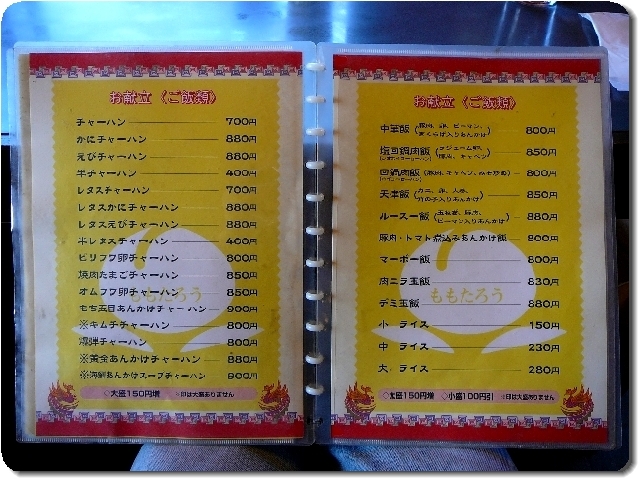 お献立 〈ご飯類〉
チャーハン 700円
かにチャーハン 880円
えびチャーハン 880円
半チャーハン 400円
レタスチャーハン 700円
レタスかにチャーハン 880円
レタスえびチャーハン 880円
半レタスチャーハン 400円
ピリフワ卵チャーハン 800円
焼肉たまごチャーハン 850円
オムフワ卵チャーハン 850円
もち五目あんかけチャーハン 900円
※キムチチャーハン 800円
爆弾チャーハン 800円
※黄金あんかけチャーハン 880円
※海鮮あんかけスープチャーハン 900円
ももたろう
◇大盛150円増 ※印は大盛ありません
お献立 〈ご飯類〉
中華飯 (豚肉、卵、ピーマン、 入りあんかけ) 800円
塩回鍋肉飯 豚肉、キャベツ 850円
回鍋肉飯 (豚肉、キャベツ、みそ炒め) 800円
天津飯 (カニ、卵、人参、 竹の子入りあんかけ) 850円
ルースー飯 (玉ねぎ、豚肉、 ピーマン入りあんかけ) 880円
豚肉・トマト煮込みあんかけ飯 900円
マーボー飯 800円
肉ニラ玉飯 830円
デミ玉飯 880円
小 ライス 150円
中 ライス 230円
大 ライス 280円
ももたろう
◇大盛150円増 ◇小盛100円引 ※印は大盛ありません